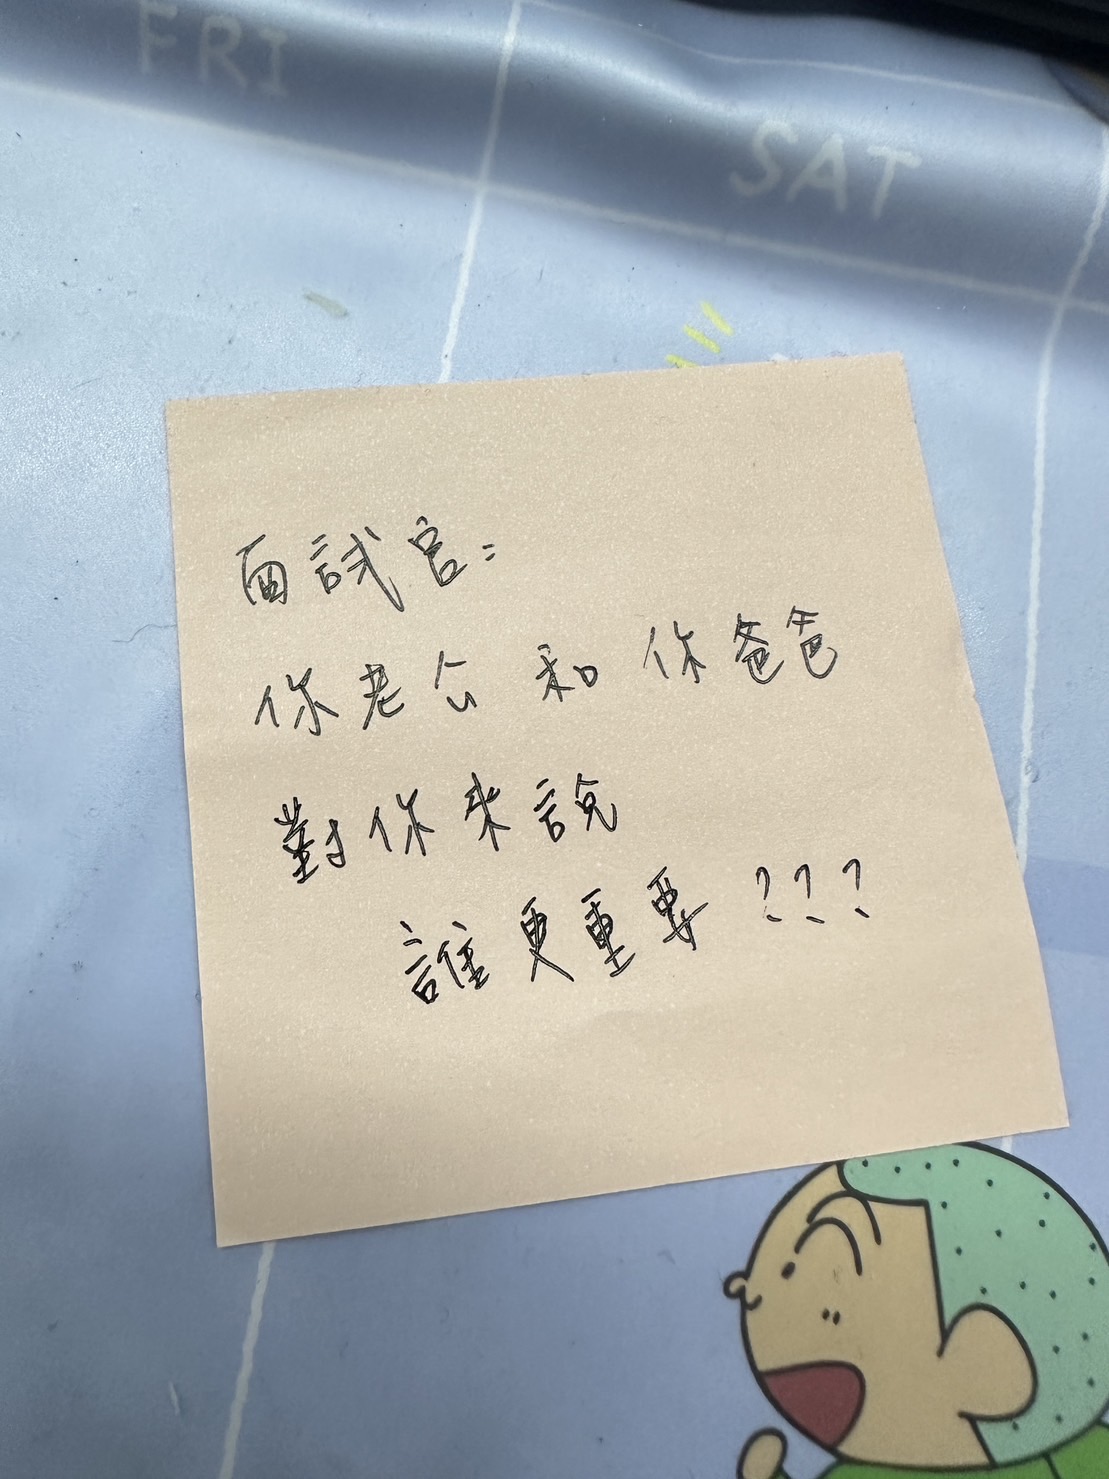 FRI
SAT
面試官：
你老公和你爸爸
對你來說
誰更重要???